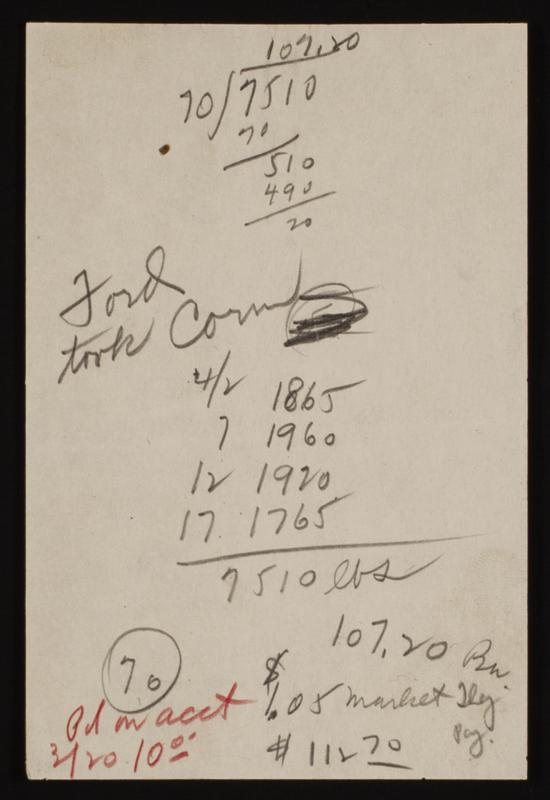 107,20
70)7510
70
510
490
20
Ford
took Corn
4/2 1865
7 1960
12 1920
17 1765
7510 lbs
107,20 Bu.
70
$ 1.05 market They
Pd on acct
3/20 10 00
Pay.
$ 112 70